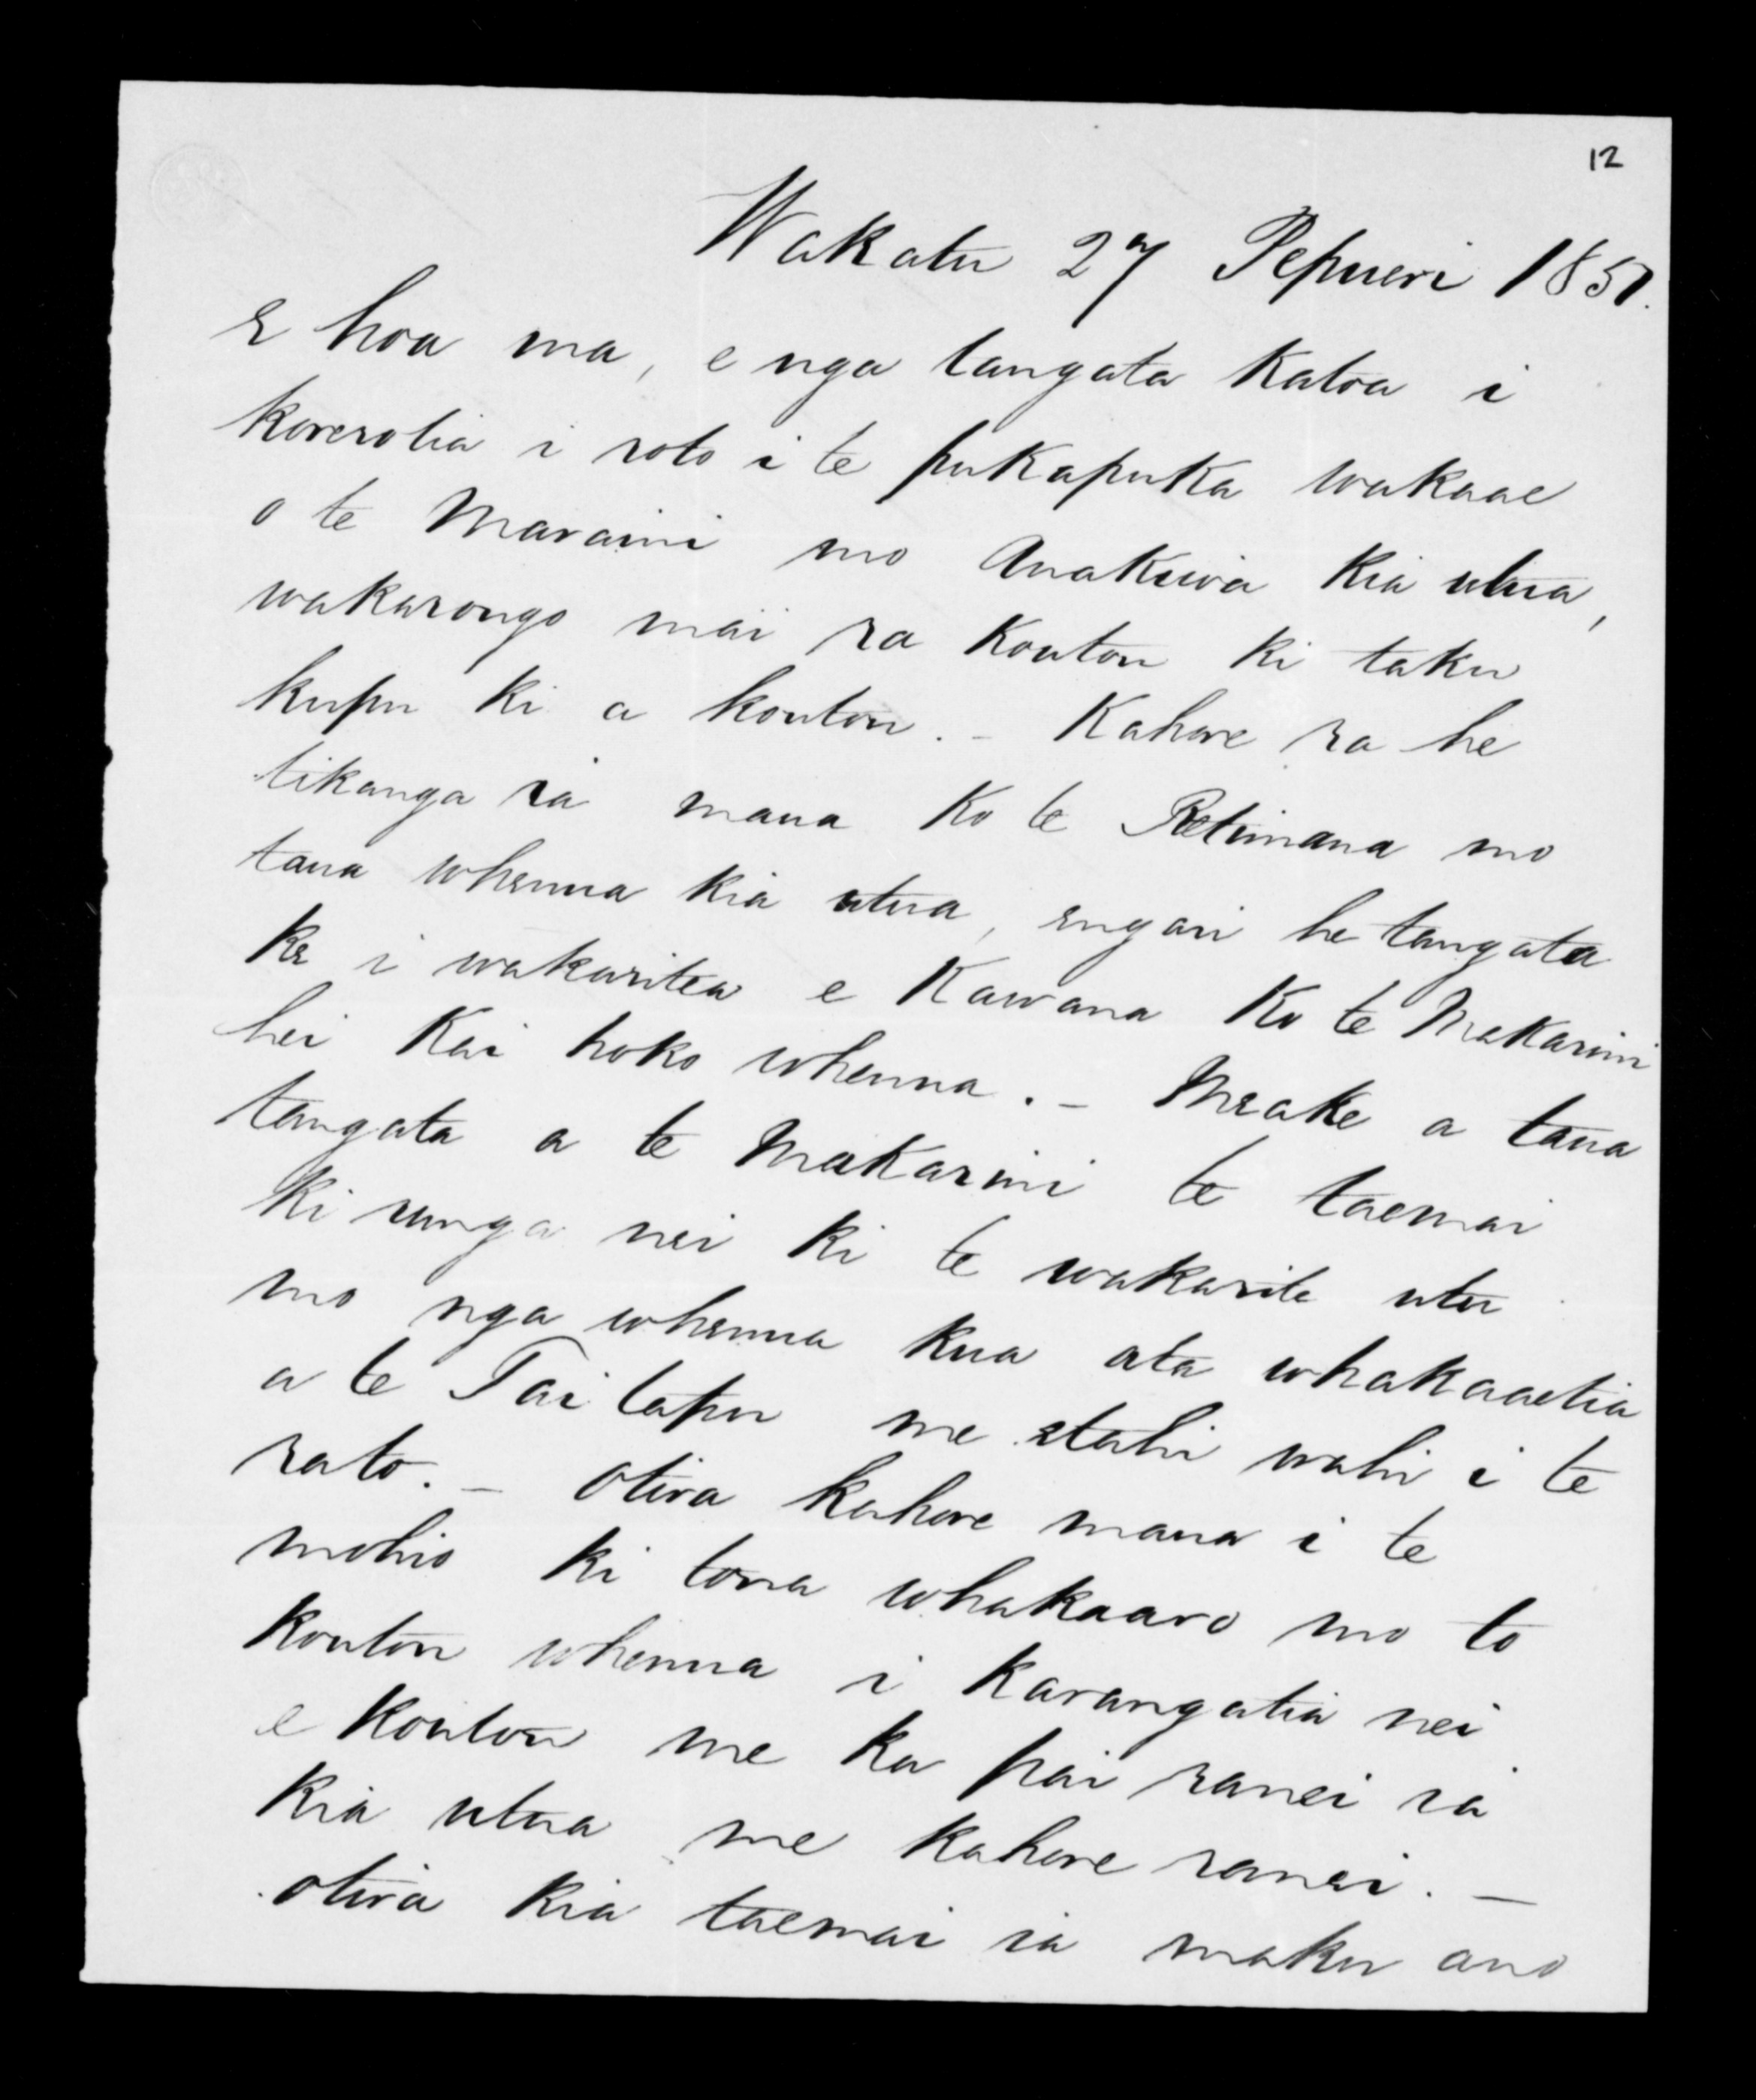 12
Wakatu 27 Pepueri 1851.
E hoa ma, e nga tangata katoa i
korerotia i roto i te pukapuka wakaae
o te Maraini mo Anakiwa kia utua,
wakarongo mai ra koutou ki taku
kupu ki a koutou. - Kahore ra he
tikanga ia mana ko te Retimana mo
taua whenua kia utua, engari he tangata
ke i wakaritea e Kawana ko te Makarini
hei kai hoko whenua. - Meake a taua
tangata a te Makarini te taemai
ki runga nei ki te wakarite utu
mo nga whenua kua ata whakaaetia
a te Taitapu me etahi wahi i te
rato. - Otira kahore maua i te
mohio ki tona whakaaro mo to
koutou whenua i karangatia nei
e koutou me ka pai ranei ia
kia utua me kahore ranei. -
otira kia taemai ia maku ano